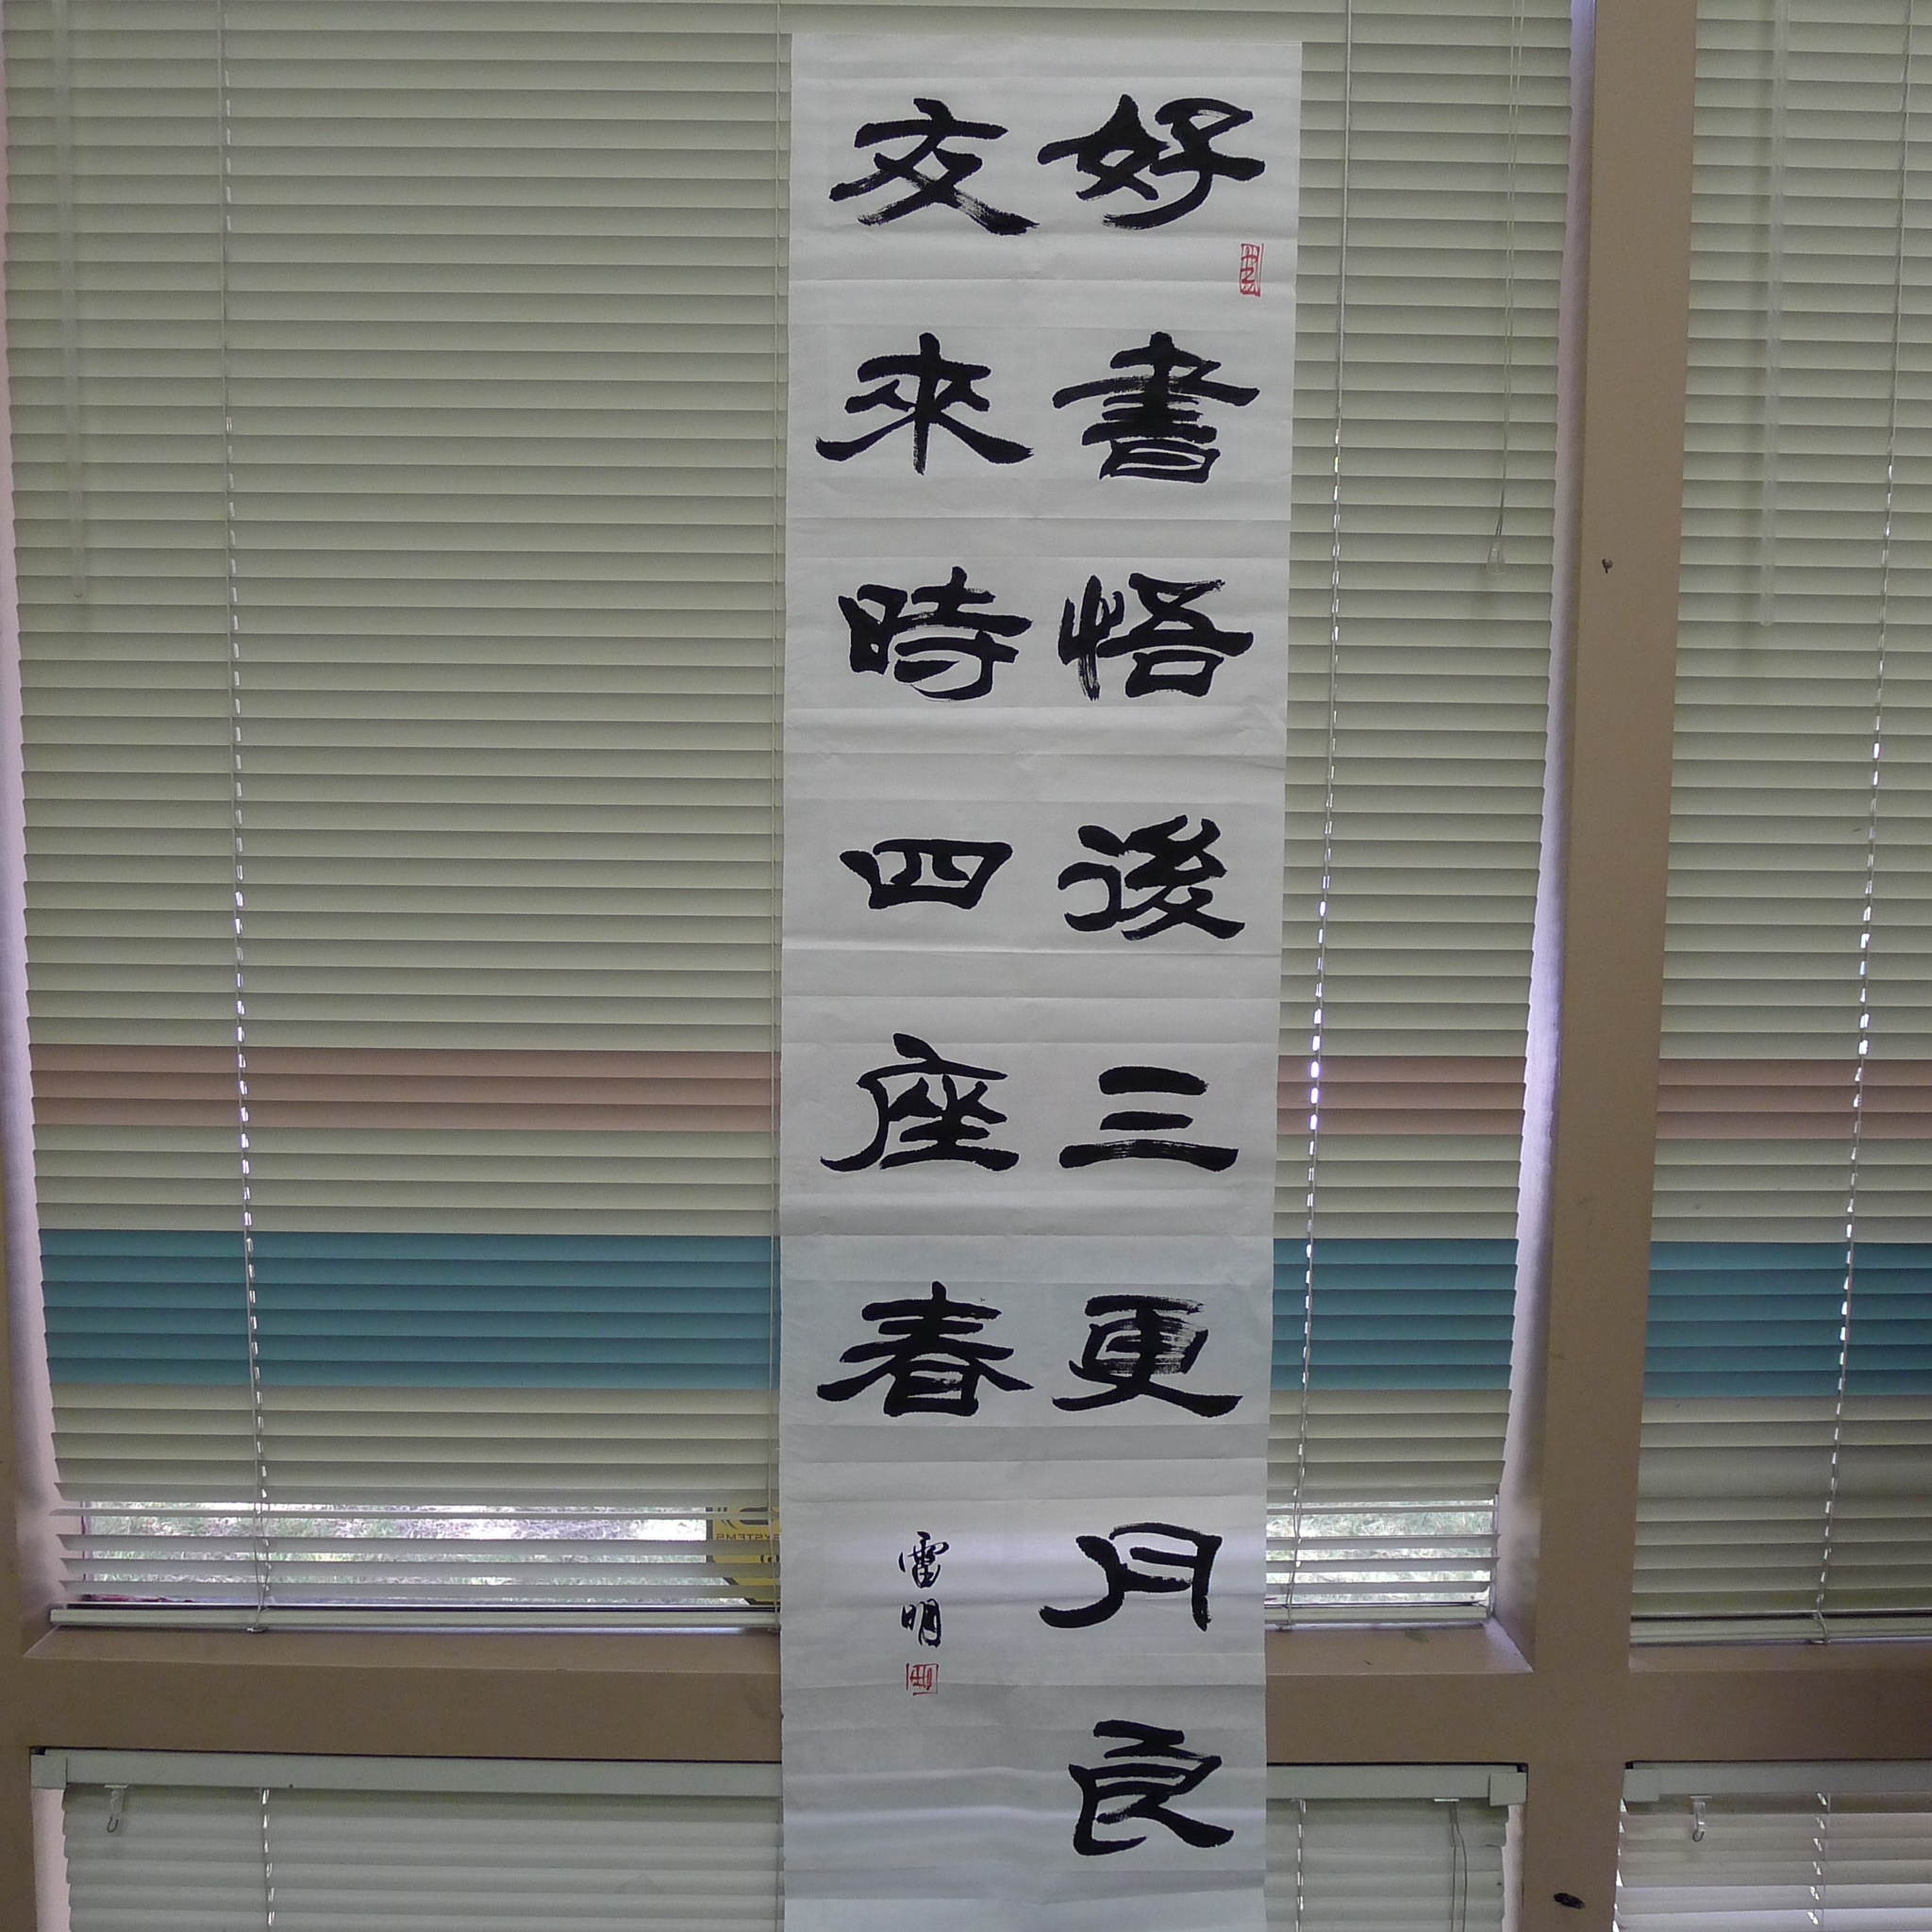 好書悟後三更月良
友來時四座春
雷明
SYSTEMS